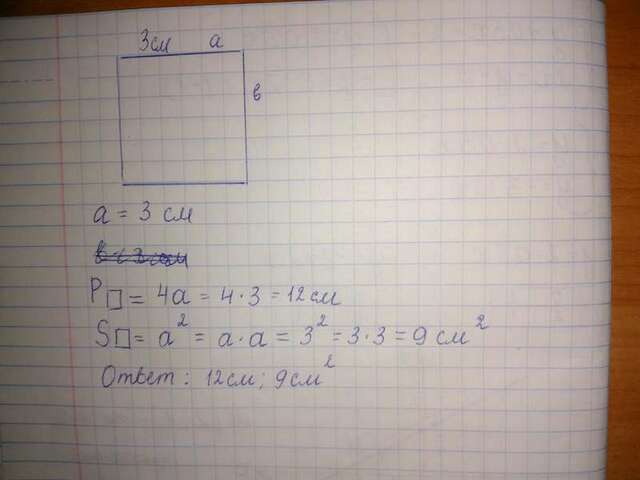 3см a
в
a = 3 см
P□ = 4a = 4·3 = 12 см
S□ = a² = a·a = 3² = 3·3 = 9 см²
Ответ: 12см; 9см²